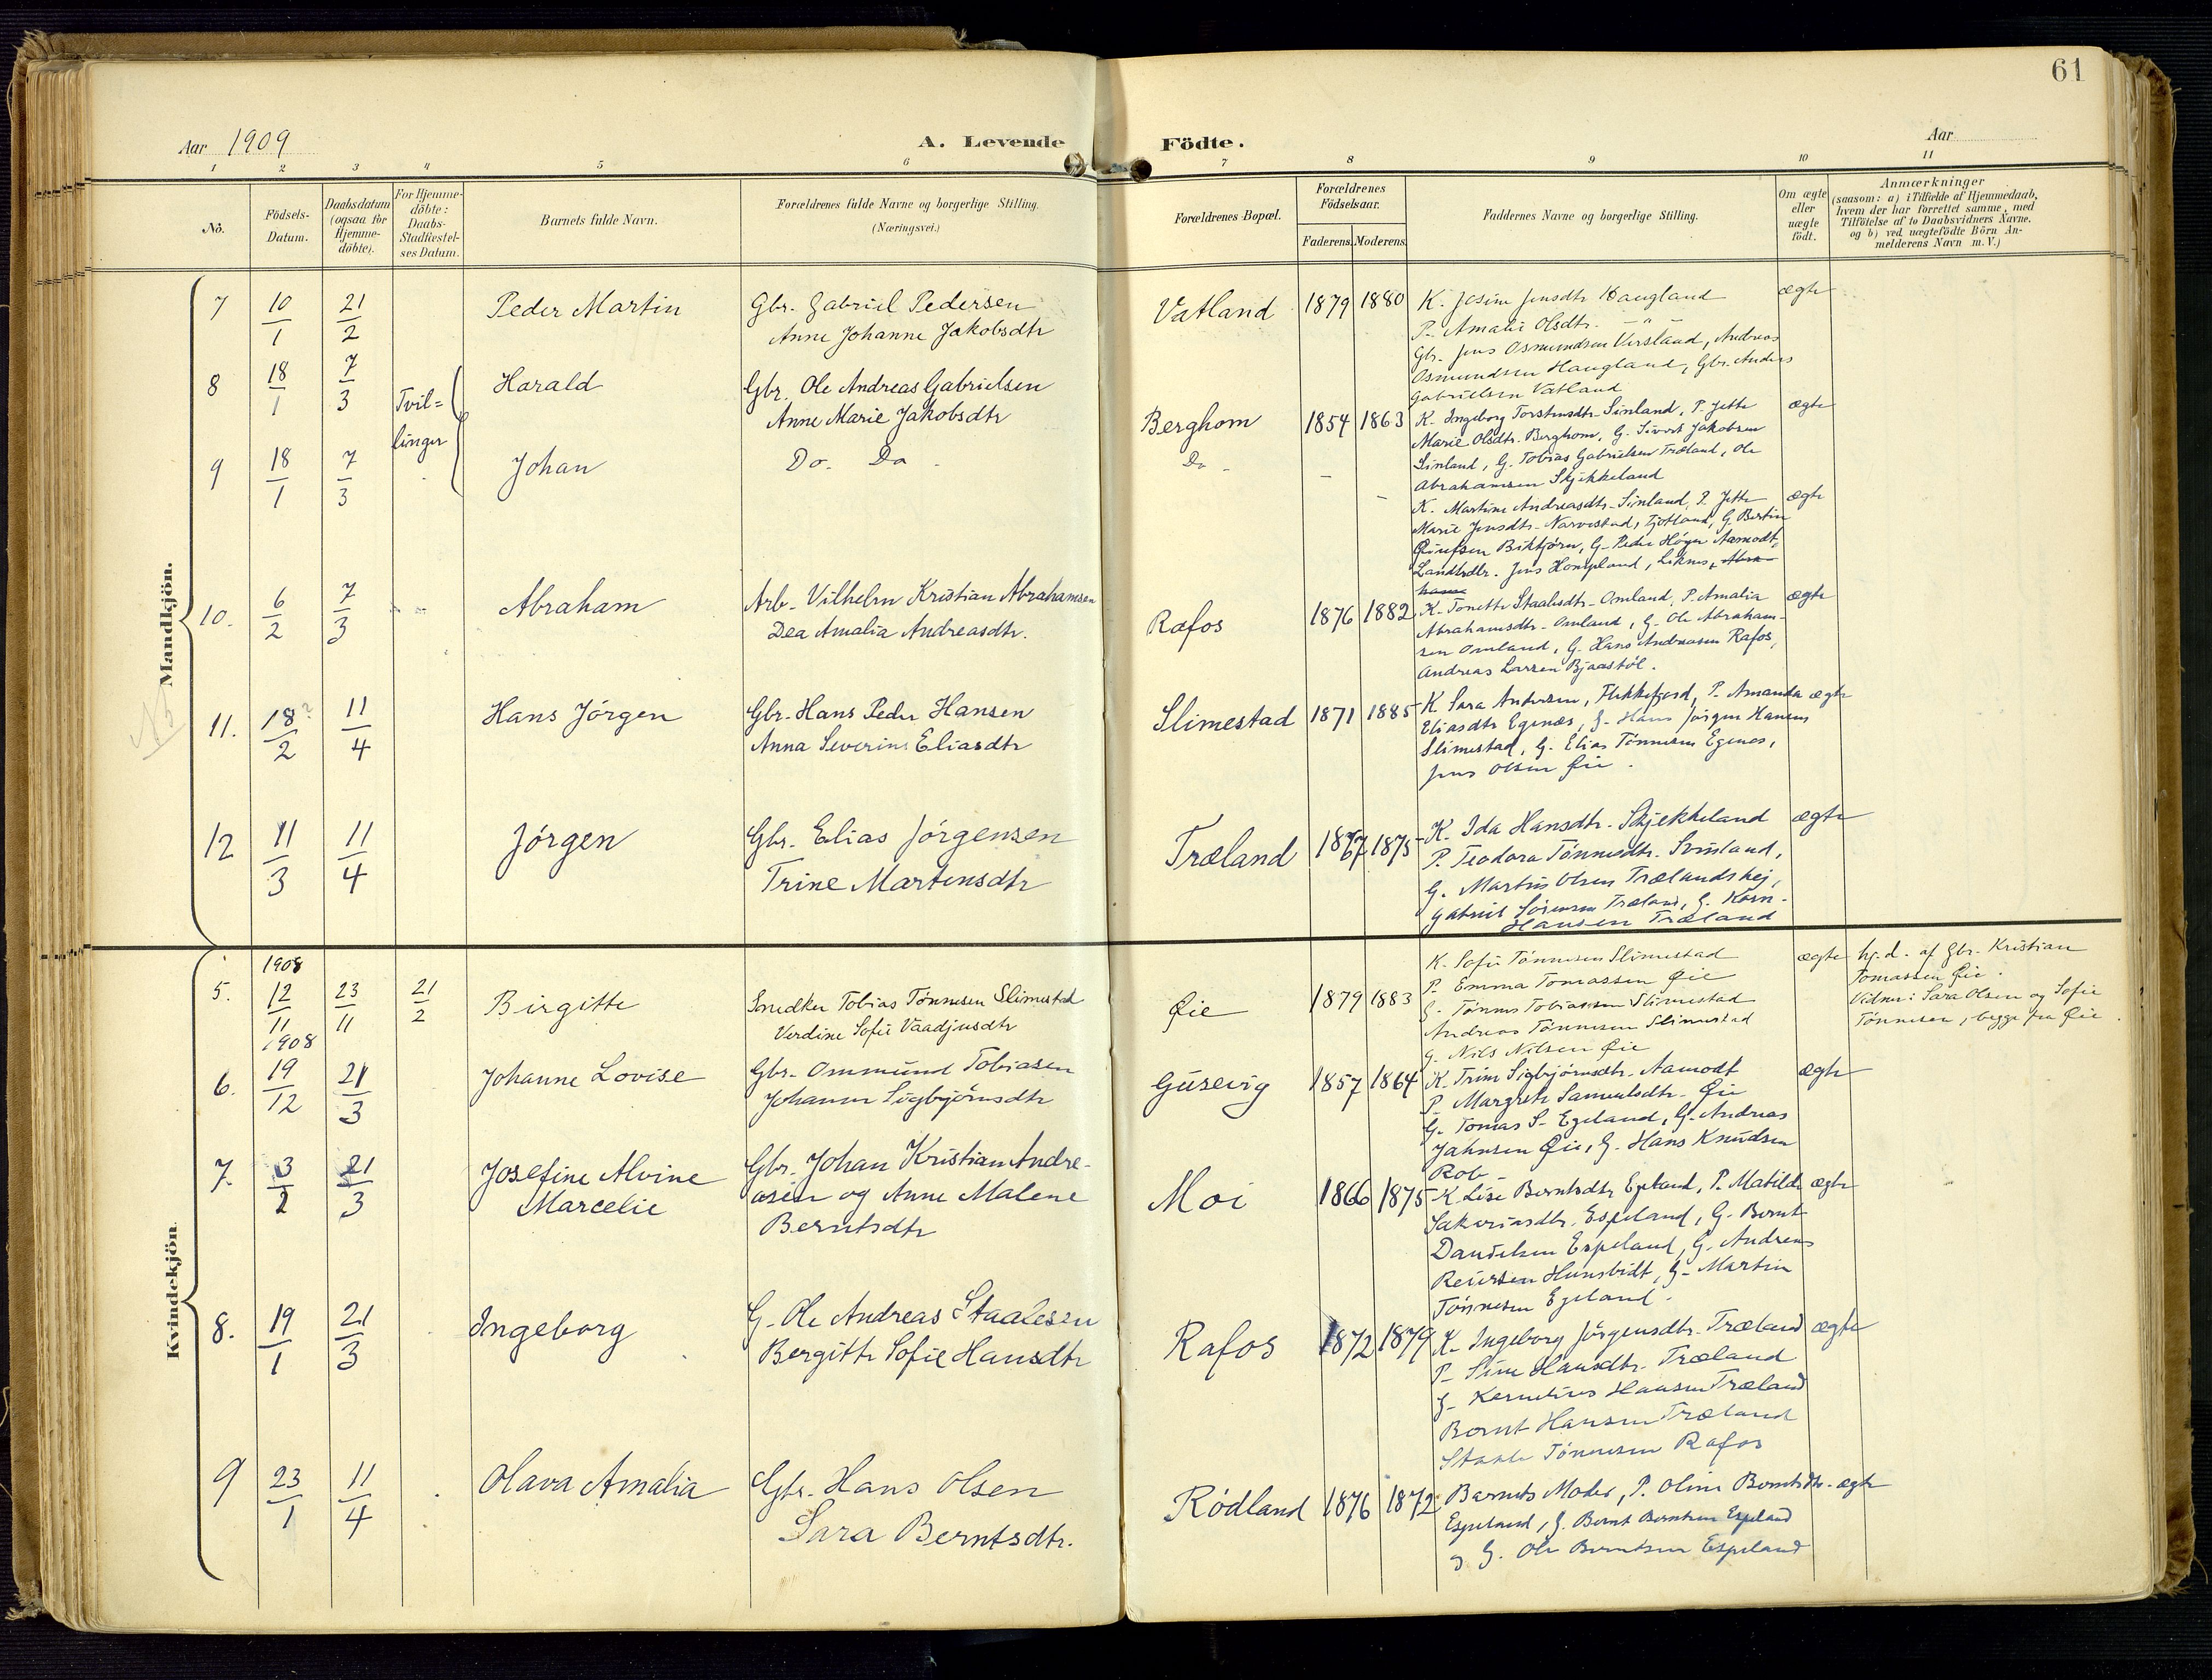 61
Aar 1909
A. Levende
Födte.
Aar
1 2 3 4 5 6 7 8 9 10 11
No.
Födsels-
Datum.
Daabsdatum
(ogsaa for
Hjemme-
döbte).
For Hjemme-
döbte:
Daabs-
Stadfæstel-
ses Datum.
Barnets fulde Navn.
Forældrenes fulde Navne og borgerlige Stilling.
(Næringsvei.)
Forældrenes Bopæl.
Forældrenes
Födselsaar.
Faderens.
Moderens.
Faddernes Navne og borgerlige Stilling.
Om ægte
eller
uægte
födt.
Anmærkninger
(saasom: a) i Tilfælde af Hjemmedaab,
hvem der har forrettet samme, med
Tilföielse af to Daabsvidners Navne.
og b) ved uægtefödte Börn An-
melderens Navn m. V.)
Mandkjön.
7 10/1 21/2 Peder Martin
Gbr. Gabriel Pedersen
Anne Johanne Jakobsdtr
Vatland 1879 1880
K. Josine Jensdtr Haugland
P. Amalie Olsdtr. — " —
Gbr. Jens Osmundsen Virsland, Andreas
Osmundsen Haugland, Gbr. Anders
Gabrielsen Vatland
ægte
8 18/1 7/3 Tvil=
linger
Harald
Gbr. Ole Andreas Gabrielsen
Anne Marie Jakobsdtr
Berghom 1854 1863
K. Ingeborg Torstensdtr Sinland, P. Jette
Marie Olsdtr. Berghom, G. Sivert Jakobsen
Sinland, G. Tobias Gabrielsen Træland, Ole
Abrahamsen Skjekkeland
ægte
9 18/1 7/3 Johan
Do. Do
Do - - -
K. Martine Andreasdtr. Sinland, P. Jette
Marie Jensdtr. Narvestad, Fjotland, G. Bertin
Biktjörn, G. Peder Höyer Aamodt,
Landhdlr. Jens Hompland, Liknes, Abra-
hams
ægte
10. 6/2 7/3 Abraham
Arb. Vilhelm Kristian Abrahamsen
Dea Amalia Andreasdtr.
Rafos 1876 1882
K. Tonette Staalesdtr. Omland, P. Amalia
Abrahamsdtr. Omland, G. Ole Abraham-
sen Omland, G. Hans Andreasen Rafos,
Andreas Larsen Bjaastöl.
ægte
11. 18?/2 11/4 Hans Jörgen
Gbr. Hans Peder Hansen
Anna Severine Eliasdtr
Slimestad 1871 1885
K Sara Andersen, Flekkefjord, P. Amanda
Eliasdtr Egenæs, G. Hans Jörgen Hansens
Slimestad, G. Elias Tönnesen Egenes,
Jens Olsen Øie.
ægte
12 11/3 11/4 Jörgen
Gbr. Elias Jörgensen
Trine Martensdtr
Træland 1867 1875
K. Ida Hansdtr. Skjekkeland
P. Teodora Tönnesdtr. Svinland,
G. Martin Olsen Trælandshej,
Gabriel Sörensen Træland, G. Korn.
Hansen Træland
ægte
Kvindekjön.
1908
5. 12/11 23/11 21/2 Birgitte
Snedker Tobias Tönnesen Slimestad
Verdine Sofie Vaadjusdtr
Øie 1879 1883
K. Sofie Tönnesen Slimestad
P. Emma Tomassen Øie
G. Tönnes Tobiassen Slimestad
Andreas Tönnesen Slimestad
G. Nils Nilsen Øie
ægte
hj. d. af Gbr. Kristian
Tomassen Øie.
Vidner: Sara Olsen og Sofie
Tönnesen, begge fra Øie.
1908
6. 19/12 21/3 Johanne Lovise
Gbr. Ommund Tobiasen
Johanne Sigbjörnsdtr
Gusevig 1857 1864
K. Trine Sigbjörnsdtr. Aamodt
P. Margrete Samuelsdtr. Øie
G. Tomas S. Egeland, G. Andreas
Jahnsen Øie, G. Hans Knudsen
Rob
ægte
7. 3/2 21/3 Josefine Alvine
Marcelie
Gbr. Johan Kristian Andre-
asen og Anne Malene
Berntsdtr
Moi 1866 1875
K Lise Berntsdtr Espeland, P. Matilde
Sakariasdtr. Espeland, G. Bernt
Danielsen Espeland, G. Andreas
Reiersen Hunsbidt, G. Martin
Tönnesen Egeland.
ægte
8. 19/1 21/3 Ingeborg
G. Ole Andreas Staalesen
Bergitte Sofie Hansdtr
Rafos 1872 1879
K. Ingeborg Jörgensdtr. Træland
P. Sine Hansdtr. Træland
G. Kornelius Hansen Træland
Bernt Hansen Træland
Staale Tönnesen Rafos
ægte
9 23/1 11/4 Olava Amalia
Gbr. Hans Olsen
Sara Berntsdtr.
Rödland 1876 1872
Barnets Moder, P. Oline Berntsdtr.
Espeland, G. Bernt Berntsen Espeland
og G. Ole Berntsen Espeland
ægte